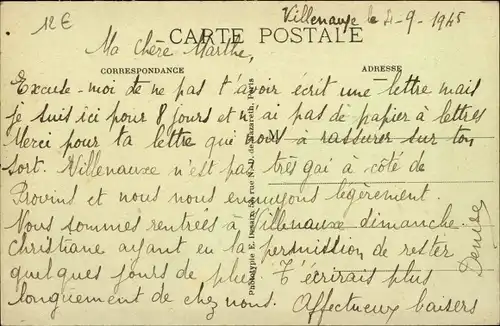 12€
Villenauxe le 4-9-1945
CARTE POSTALE
Ma chère Marthe,
CORRESPONDANCE
ADRESSE
Excuse-moi de ne pas t'avoir écrit une lettre mais
je suis ici pour 8 jours et n'ai pas de papier à lettres
Merci pour ta lettre qui nous a rassurer sur ton
sort. Villenauxe n'est pas très gai à côté de
Provins et nous nous ennuyons légèrement.
Nous sommes rentrées à Villenauxe dimanche.
Christiane ayant eu la permission de rester
quelques jours de plus. T'écrirais plus
longuement de chez nous. Affectueux baisers
Denise
Phototypie E. rue N.-D. de Nazareth, Paris